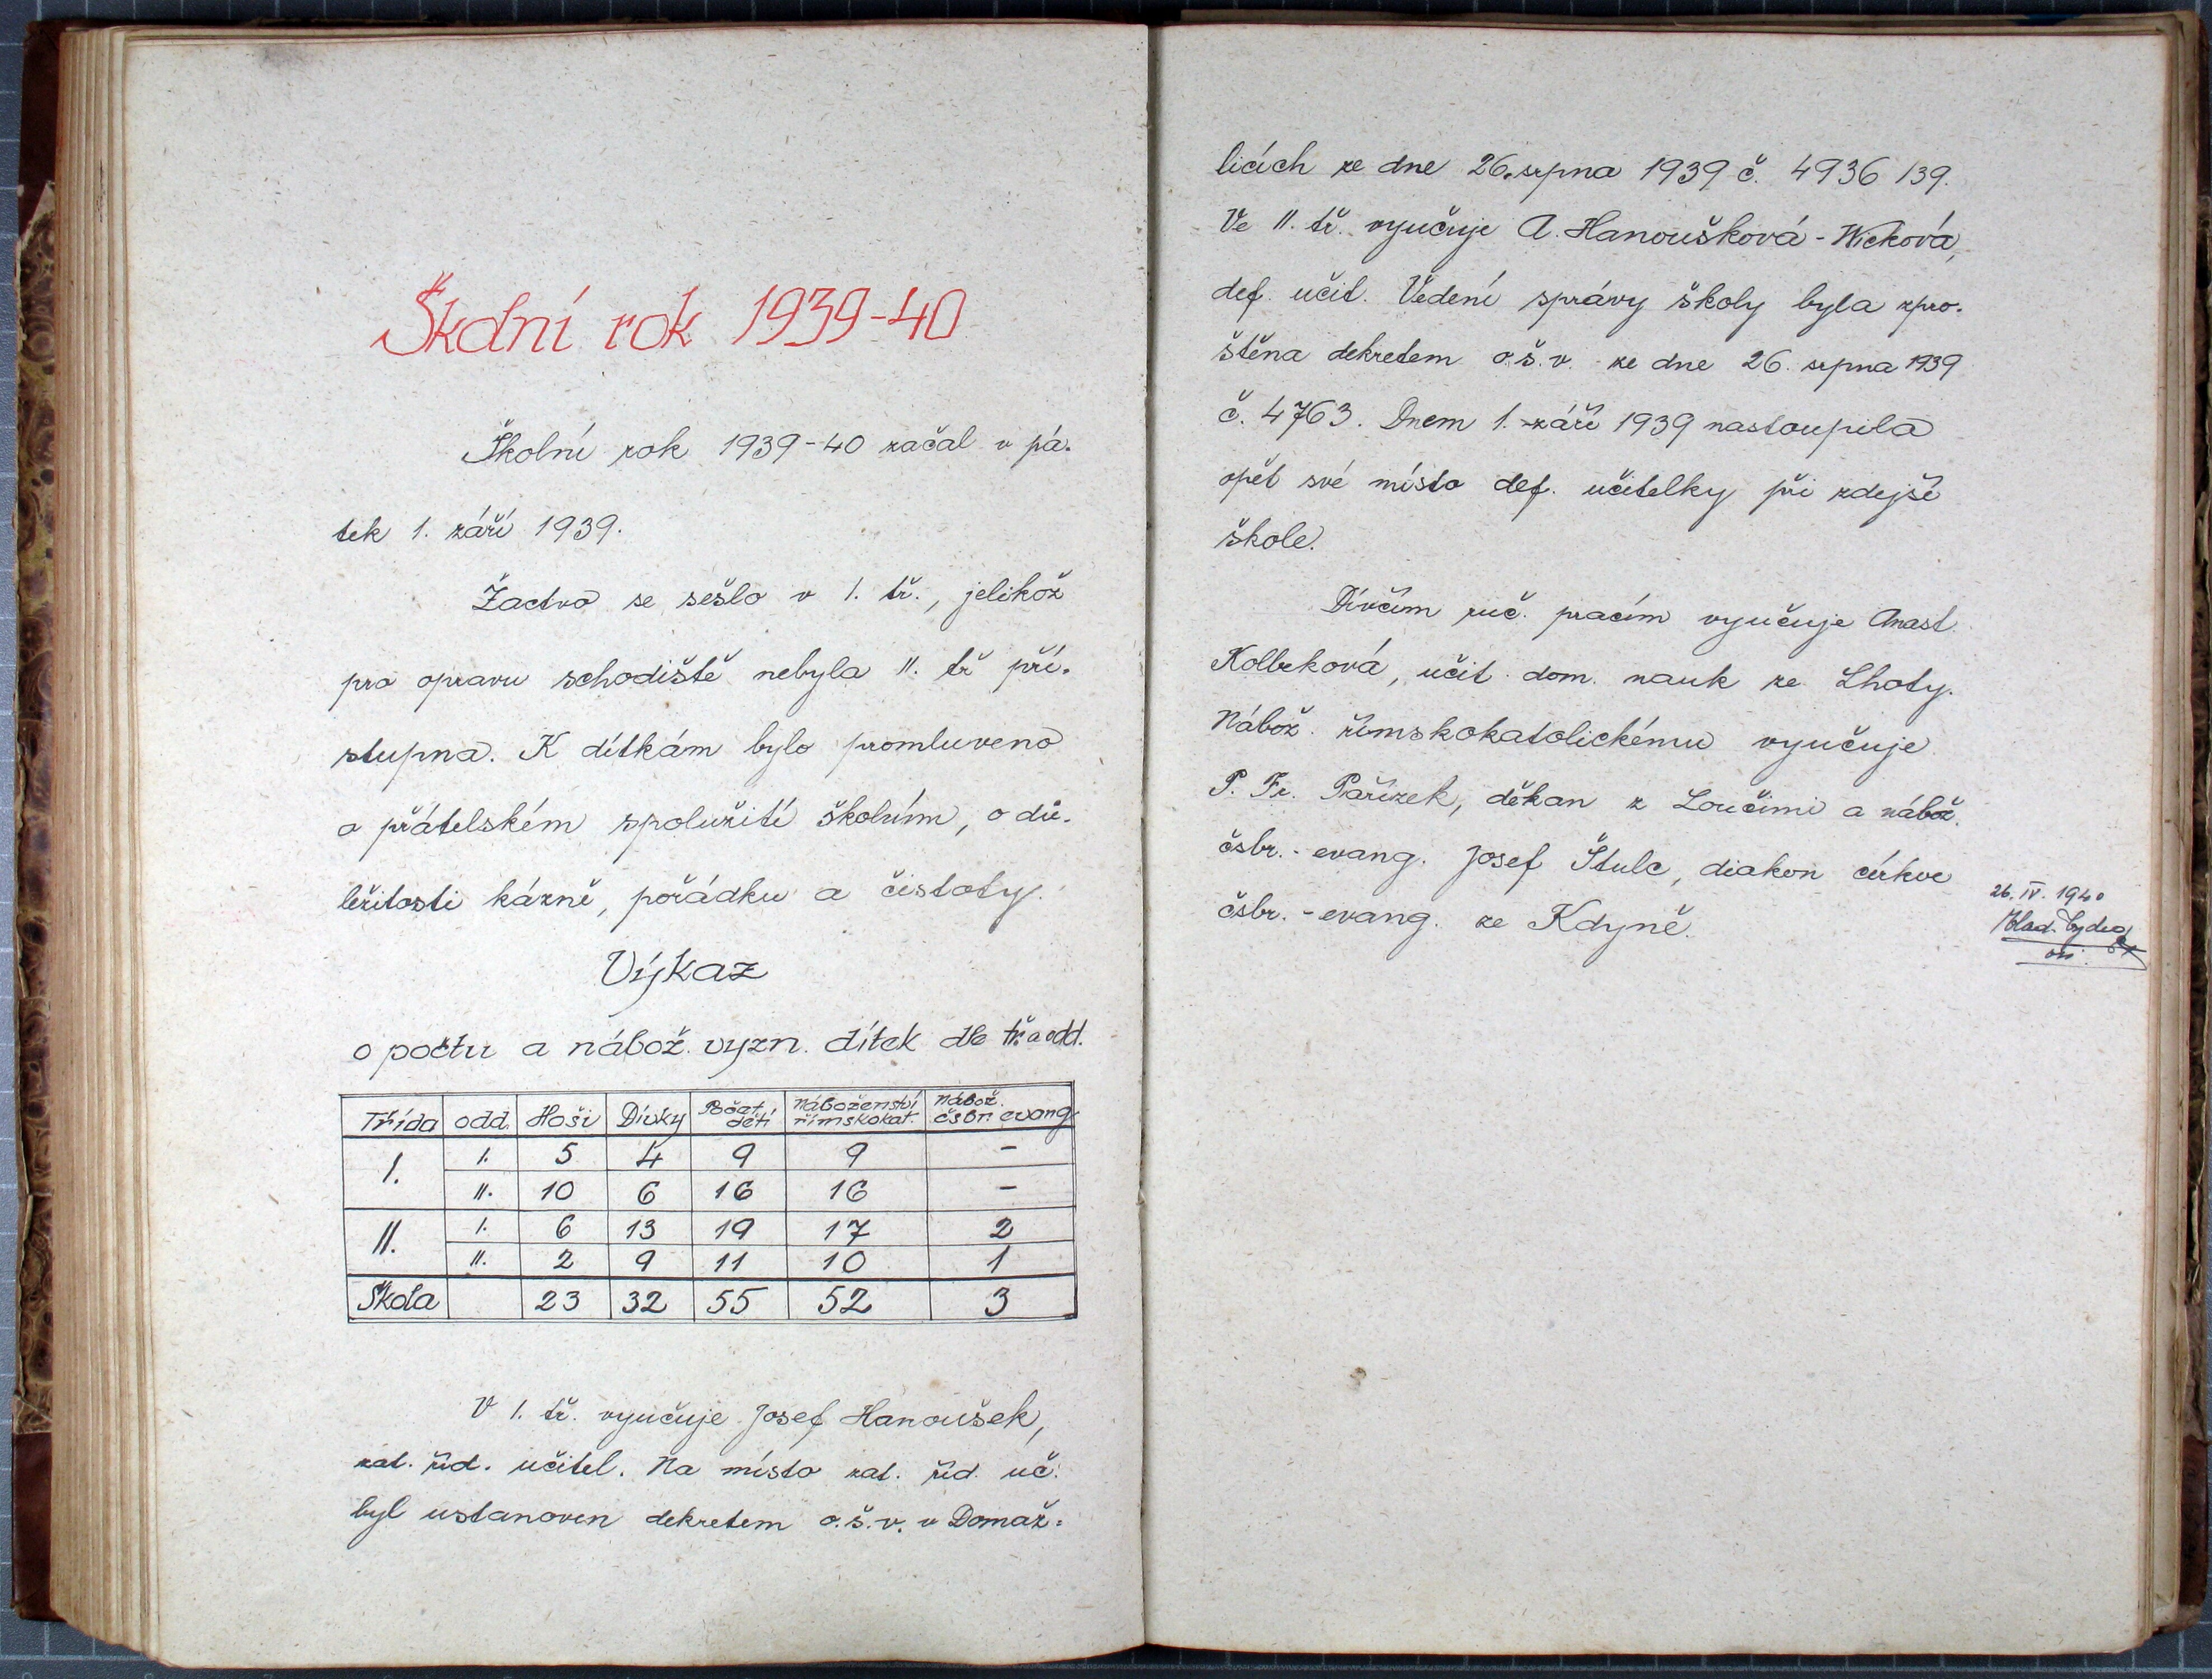 Školní rok 1939-40
Školní rok 1939-40 začal v pá-
tek 1. září 1939.
Žactvo se sešlo v I. tř., jelikož
pro opravu schodiště nebyla II. tř pří-
stupna. K dítkám bylo promluveno
o přátelském spolužití školním, o dů-
ležitosti kázně, pořádku a čistoty.
Výkaz
o počtu a nábož. vyzn. dítek dle tř. a odd.
Třída odd. Hoši Dívky Počet dětí Náboženství římskokat. Nábož. čsbr. evang.
I. I. 5 4 9 9 -
II. 10 6 16 16 -
II. I. 6 13 19 17 2
II. 2 9 11 10 1
Škola 23 32 55 52 3
V I. tř. vyučuje Josef Hanoušek,
zat. říd. učitel. Na místo zat. říd. uč.
byl ustanoven dekretem o.š.v. v Domaž-
licích ze dne 26. srpna 1939 č. 4936/39.
Ve II. tř. vyučuje A. Hanoušková-Wicková,
def. učit. Vedení správy školy byla zpro-
štěna dekretem o.š.v. ze dne 26. srpna 1939
č. 4763. Dnem 1. září 1939 nastoupila
opět své místo def. učitelky při zdejší
škole.
Dívčím ruč. pracím vyučuje Anast.
Kolbeková, učit. dom. nauk ze Lhoty.
Nábož. římskokatolickému vyučuje
P. Fr. Pařízek, děkan z Loučimi a nábož.
čsbr.-evang. Josef Štulc, diakon církve
čsbr.-evang. ze Kdyně.
26. IV. 1940